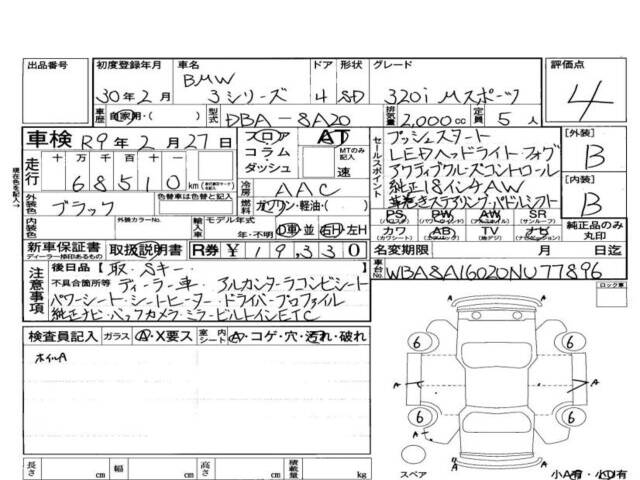 出品番号 初度登録年月 車名 ドア 形状 グレード 評価点
BMW
30年2月 3シリーズ 4 SD 320i Mスポーツ 4
車歴 自家用・( ) 型式 DBA-8A20 排気量 2,000cc 定員 5人
車検 R9年2月27日 フロア コラム ダッシュ AT MTのみ記入 速
走行 十 万 千 百 十 一
68510 km
冷房 AAC
セールスポイント
プッシュスタート
LEDヘッドライト・フォグ
アクティブクルーズコントロール
純正18インチAW
革巻きステアリング・パドルシフト
[外装] B
[内装] B
外装色 ブラック 色替車は色替と記入 ガソリン・軽油・( )
PS PW AW SR
(パワステ) (パワーウィンド) (アルミホイール) (サンルーフ)
カワ AB TV ナビ
(カワシート) (エアバッグ) (地デジ) (ナビゲーション)
純正品のみ丸印
内装色 外装カラーNo. 輸入車 モデル年式 年・不明 D車・並 右H・左H
新車保証書 ディーラー捺印あるもの 取扱説明書 R券 ¥19,330 名変期限 月 日
車台No. WBA8A16020NU77896
注意事項 後日品 [取.Sキー ]
不具合箇所等 ディーラー車・アルカンターラコンビシート
パワーシート・シートヒーター・ドライバープロファイル
純正ナビ・バックカメラ・ミラービルトインETC
ロック車
検査員記入 ガラス A・X要ス 室内シート A・コゲ・穴・汚れ・破れ
ホイルA
6 6
A A A
6 6
A
A
スペア 小A有・小D有
長さ cm 幅 cm 高さ cm 積載量 kg
現在色を記入→